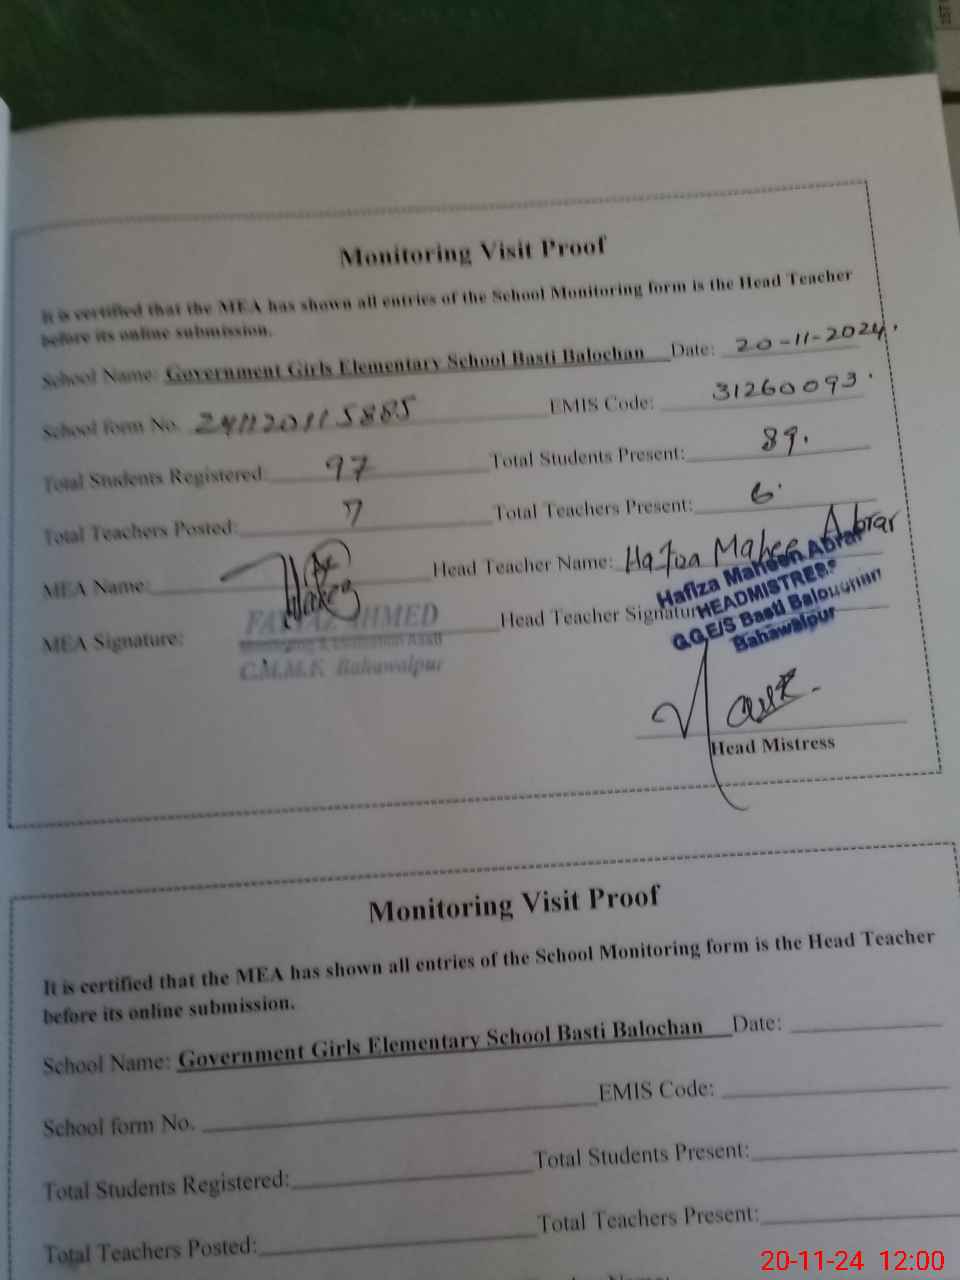 Monitoring Visit Proof
It is certified that the MEA has shown all entries of the School Monitoring form is the Head Teacher
before its online submission.
School Name: Government Girls Elementary School Basti Balochan Date: 20-11-2024.
School form No. 241120115885 EMIS Code: 31260093.
Total Students Registered: 97 Total Students Present: 89.
Total Teachers Posted: 7 Total Teachers Present: 6.
MEA Name: Head Teacher Name: Hafiza Maheen Abrar
MEA Signature: Head Teacher Signature
AHMED
Monitoring & Evaluation Asstt
C.M.M.F. Bahawalpur
Hafiza Maheen Abrar
HEADMISTRESS
G.G.E/S Basti Balouchan
Bahawalpur
Head Mistress
Monitoring Visit Proof
It is certified that the MEA has shown all entries of the School Monitoring form is the Head Teacher
before its online submission.
School Name: Government Girls Elementary School Basti Balochan Date:
School form No. EMIS Code:
Total Students Registered: Total Students Present:
Total Teachers Posted: Total Teachers Present:
Name:
20-11-24 12:00